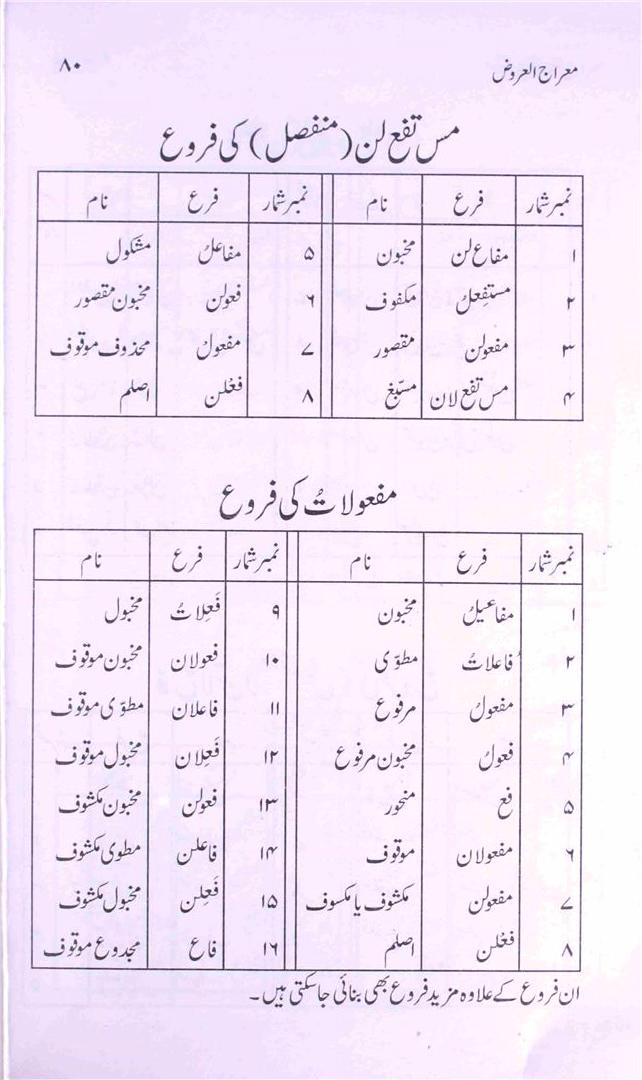 معراج العروض ۸۰
مس تفع لن (منفصل) کی فروع
نمبر شمار فرع نام نمبر شمار فرع نام
۱ مفاع لن مخبون ۵ مفاعلُ مشکول
۲ مستفعلُ مکفوف ۶ فعولن مخبون مقصور
۳ مفعولن مقصور ۷ مفعولُ محذوف موقوف
۴ مس تفع لان مسبّغ ۸ فعْلن اصلم
مفعولاتُ کی فروع
نمبر شمار فرع نام نمبر شمار فرع نام
۱ مفاعیلُ مخبون ۹ فَعِلاتُ مخبول
۲ فاعلاتُ مطوّی ۱۰ فعولان مخبون موقوف
۳ مفعولُ مرفوع ۱۱ فاعلان مطوّی موقوف
۴ فعولُ مخبون مرفوع ۱۲ فَعِلان مخبول موقوف
۵ فع منحور ۱۳ فعولن مخبون مکشوف
۶ مفعولان موقوف ۱۴ فاعلن مطوی مکشوف
۷ مفعولن مکشوف یا مکسوف ۱۵ فَعِلن مخبول مکشوف
۸ فعْلن اصلم ۱۶ فاع مجدوع موقوف
ان فروع کے علاوہ مزید فروع بھی بنائی جا سکتی ہیں۔